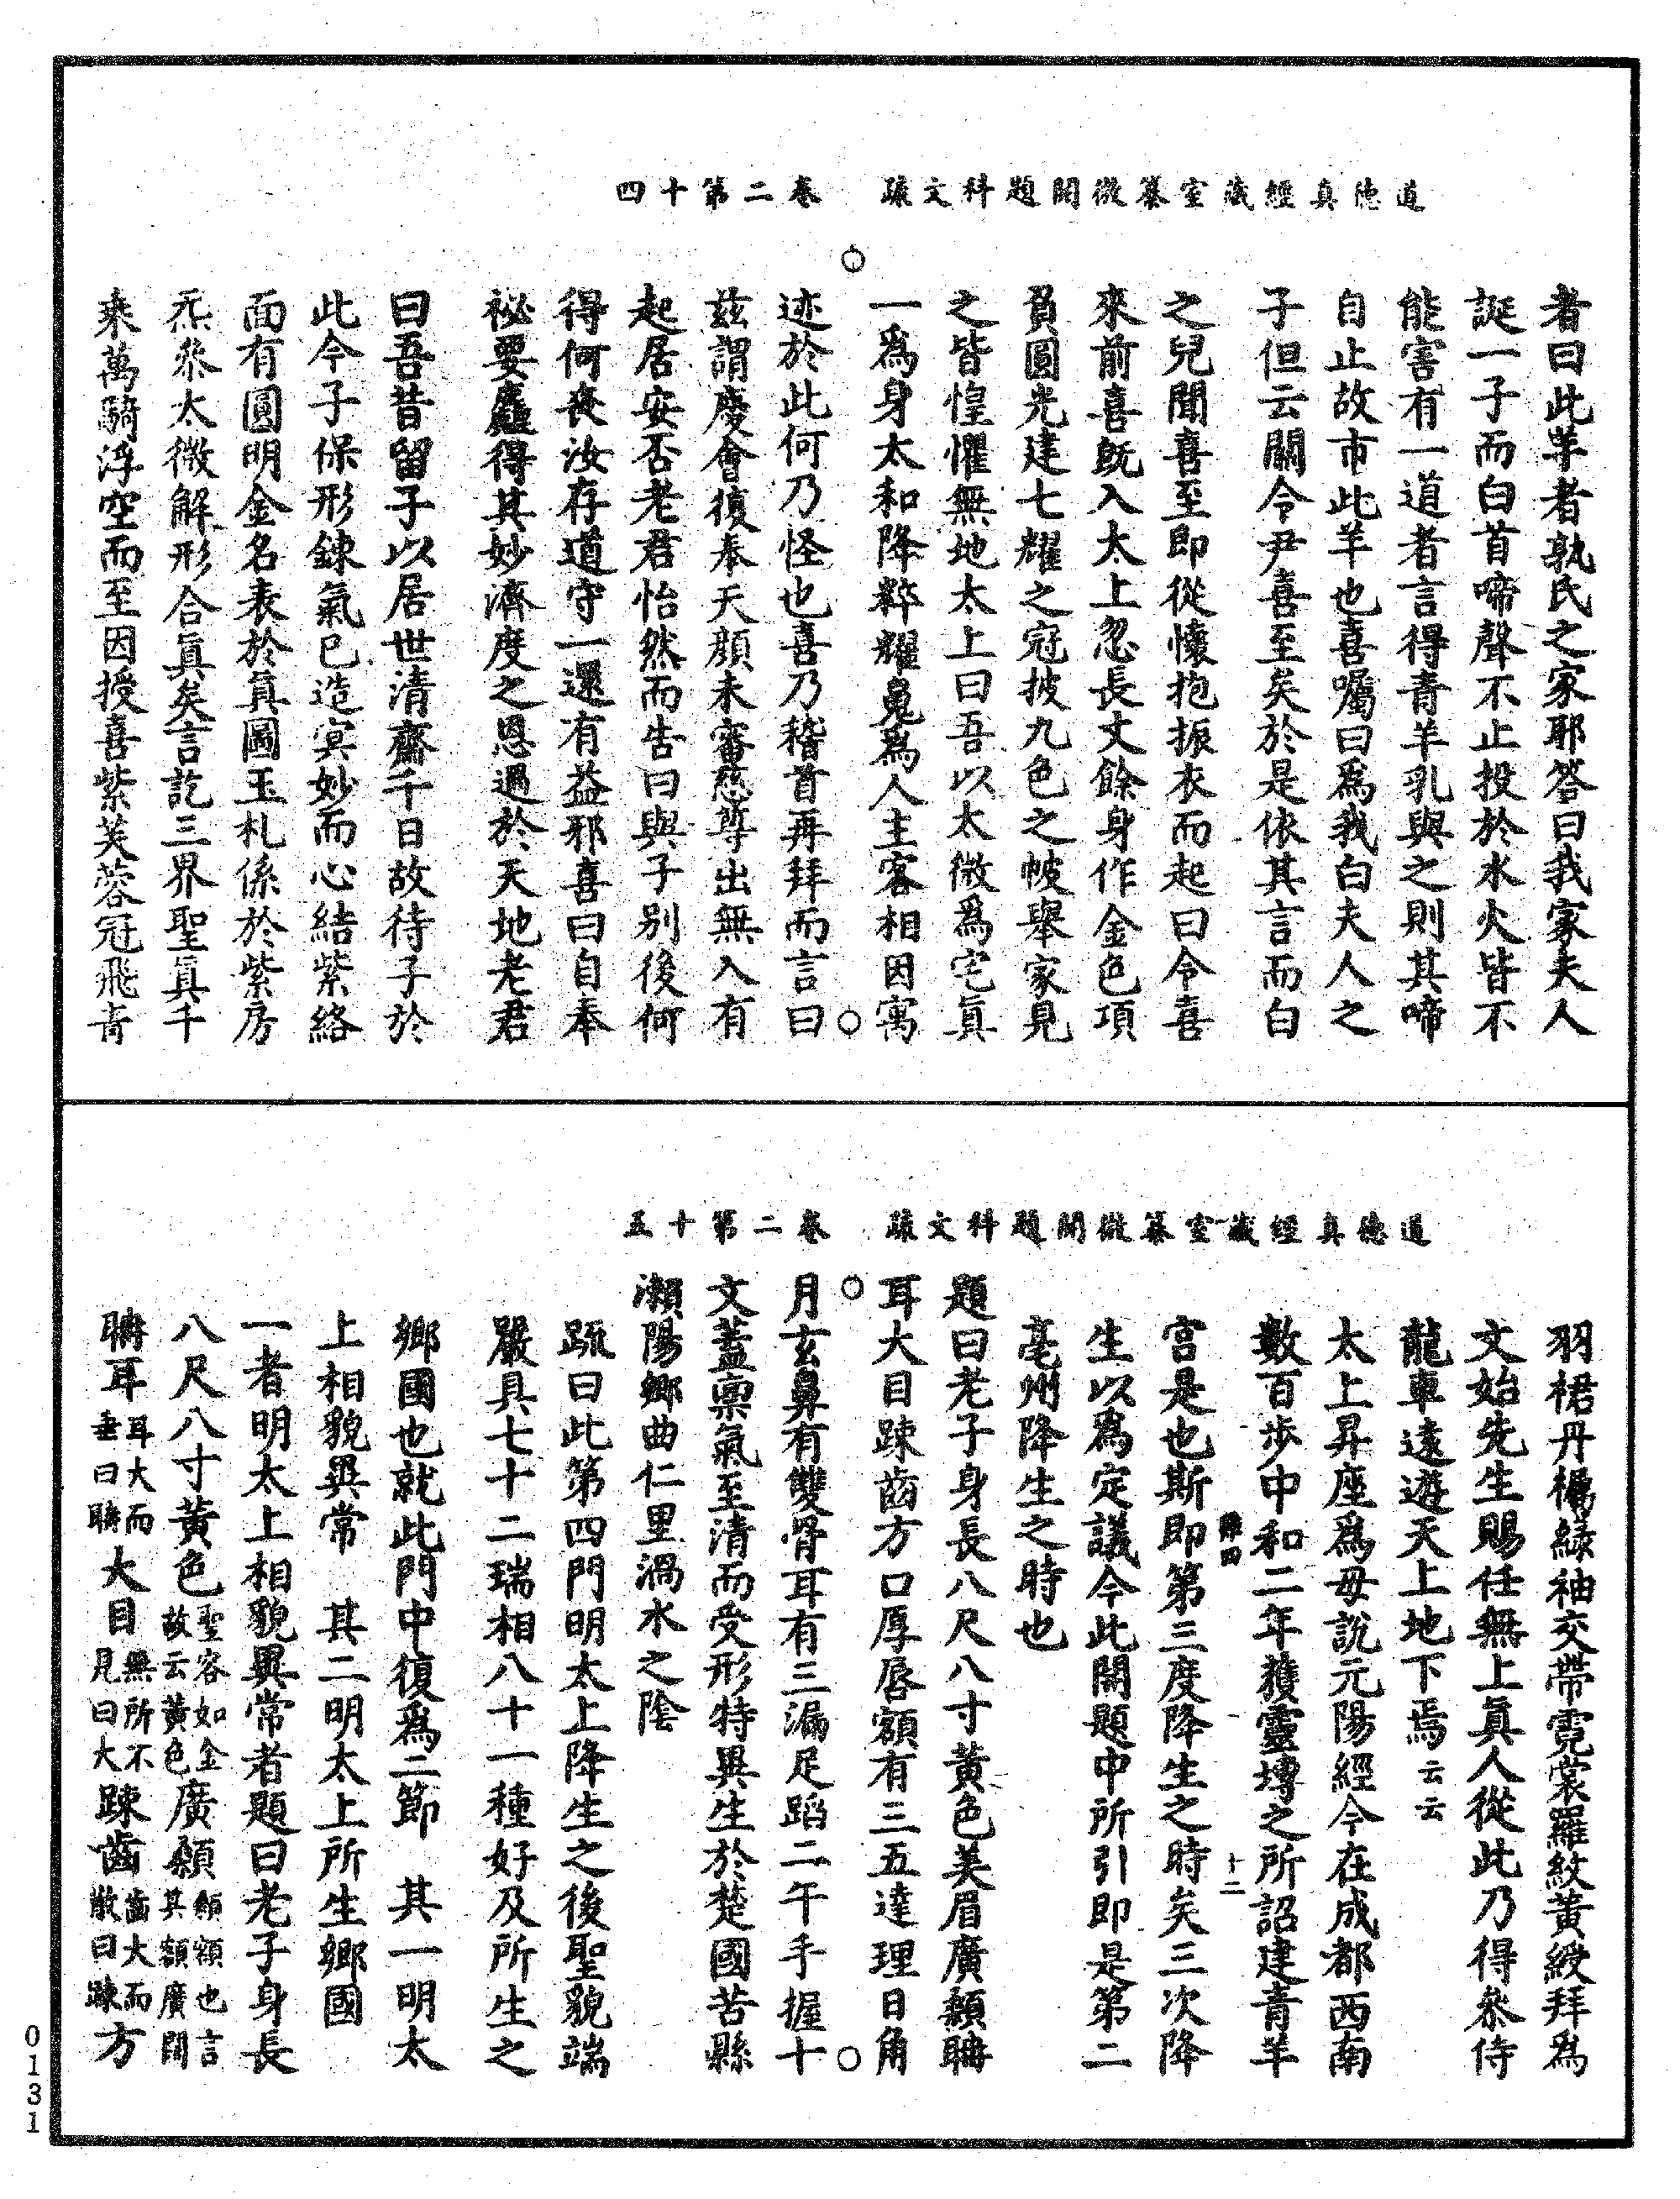 道德真經藏室纂微開題科文疏　卷二第十四
者曰此羊者孰氏之家耶答曰我家夫人
誕一子而白首啼聲不止投於水火皆不
能害有一道者言得青羊乳與之則其啼
自止故市此羊也喜囑曰爲我白夫人之
子但云關令尹喜至矣於是依其言而白
之兒聞喜至即從懷抱振衣而起曰令喜
來前喜既入太上忽長丈餘身作金色項
負圓光建七耀之冠披九色之帔舉家見
之皆惶懼無地太上曰吾以太微爲宅真
一爲身太和降粹耀魄爲人主客相因寓
迹於此何乃怪也喜乃稽首再拜而言曰
兹謂慶會復奉天顔未審慈尊出無入有
起居安否老君怡然而告曰與子别後何
得何喪汝存道守一還有益邪喜曰自奉
祕要麤得其妙濟度之恩過於天地老君
曰吾昔留子以居世清齋千日故待子於
此今子保形錬氣已造㝠妙而心結紫絡
面有圓明金名表於真圖玉札係於紫房
炁參太微解形合真矣言訖三界聖真千
乘萬騎浮空而至因授喜紫芙蓉冠飛青
道德真經藏室纂微開題科文疏　卷二第十五
羽裙丹襡緑袖交帶霓裳羅紋黃綬拜爲
文始先生賜任無上真人從此乃得參侍
龍車遠遊天上地下焉云云
太上昇座爲母說元陽經今在成都西南
數百步中和二年獲靈塼之所詔建青羊
難四　十二
宫是也斯即第三度降生之時矣三次降
生以爲定議今此開題中所引即是第二
亳州降生之時也
題曰老子身長八尺八寸黃色美眉廣顙聃
耳大目踈齒方口厚唇額有三五達理日角
月玄鼻有雙骨耳有三漏足蹈二午手握十
文蓋稟氣至清而受形特異生於楚國苦縣
瀨陽鄉曲仁里渦水之陰
疏曰此第四門明太上降生之後聖貌端
嚴具七十二瑞相八十一種好及所生之
鄉國也就此門中復爲二節　其一明太
上相貌異常　其二明太上所生鄉國
一者明太上相貌異常者題曰老子身長
八尺八寸黃色聖容如金故云黃色廣顙顙額也言其額廣闊
聃耳耳大而垂曰聃大目無所不見曰大踈齒齒大而散曰踈方
0131